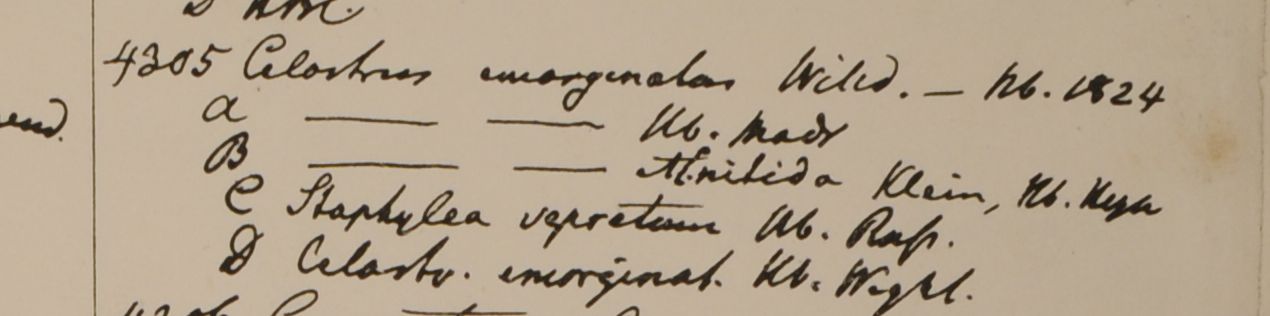 D Hb.
4305 Celastrus emarginatus Willd. — Hb. 1824
A — — Hb. Madr
B — — nitida Klein, Hb. Heyn
C Staphylea vepretum Hb. Russ.
D Celastr. emarginat. Hb. Wight.